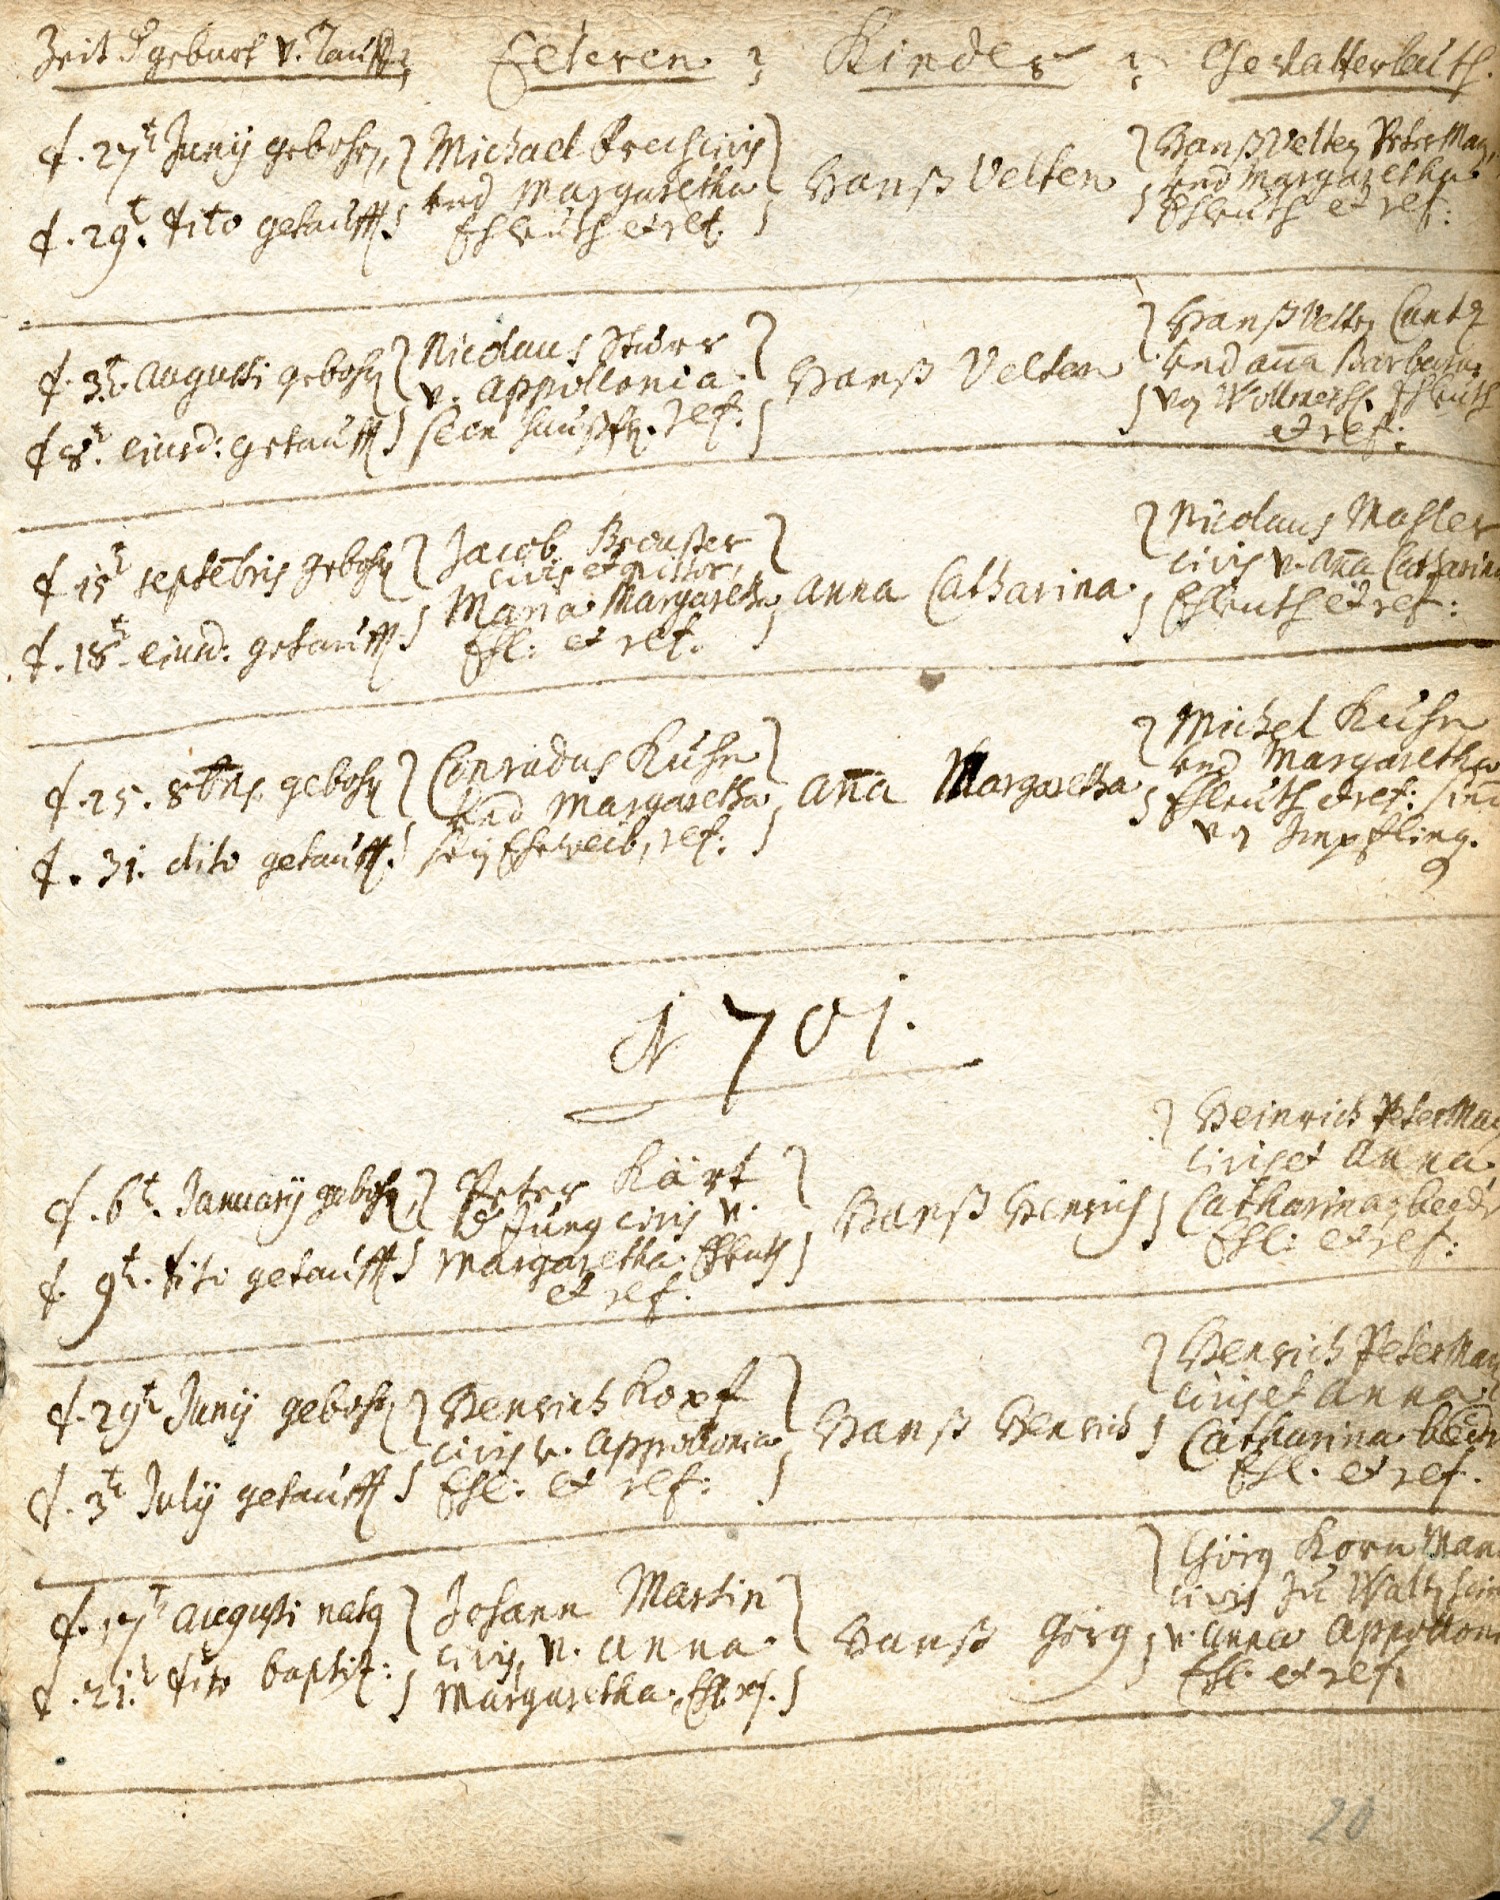 Zeit d geburt v. Tauff
Elteren
Kinder
Gevatterleuth.
d. 27t Junij gebohrn,
d. 29t. dito getaufft.
Michael
und Margaretha
Ehleuth et ref.
Hanß Velten
Hanß Velten PeterMan,
und Margaretha
Ehleuth et ref:
d. 3t. augusti gebohrn
d 8t. eiusd: getaufft
Nicolaus Stürr
v. appollonia
sein haußfr. ref.
Hanß Velten
Hanß Velten Cuntz
und aña Barbara
von Wollmersh. Ehleuth
et ref:
d. 15t septebris gebohrn
d. 18t. eiusd. getaufft.
Jacob
civis et pistor,
Maria Margareth
Ehl: et ref.
anna Catharina
Nicolaus Mahler
civis v. aña Catharina
Ehleuth et ref:
d. 25. 8bris gebohrn
d. 31. dito getaufft.
Conradus Kuhn
und Margaretha
sein Eheweib, ref:
aña Margaretha
Michel Kuhn
und Margaretha
Ehleuth et ref: sind
von Impfling.
1701.
d. 6t. Januarij gebohrn,
d. 9t. dito getaufft
Peter Kärt
der Jung civis v.
Margaretha Ehleuth
et ref.
Hanß Henrich
Heinrich PeterMan
civis et anna
Catharina, beede
Ehl: et ref:
d. 29t Junij gebohrn
d. 3t July getaufft
Henrich Kopf
civis v. appollonia
Ehl: et ref:
Hanß Henrich
Henrich PeterMan
civis et anna
Catharina beede
Ehl. et ref.
d. 17t augusti natq
d. 21.t dito baptiz:
Johann Martin
civis, v. anna
Margaretha, Ehl. ref.
Hanß Görg
Görg KornMan
civis zu
v. anna appollonia
Ehl. et ref.
20